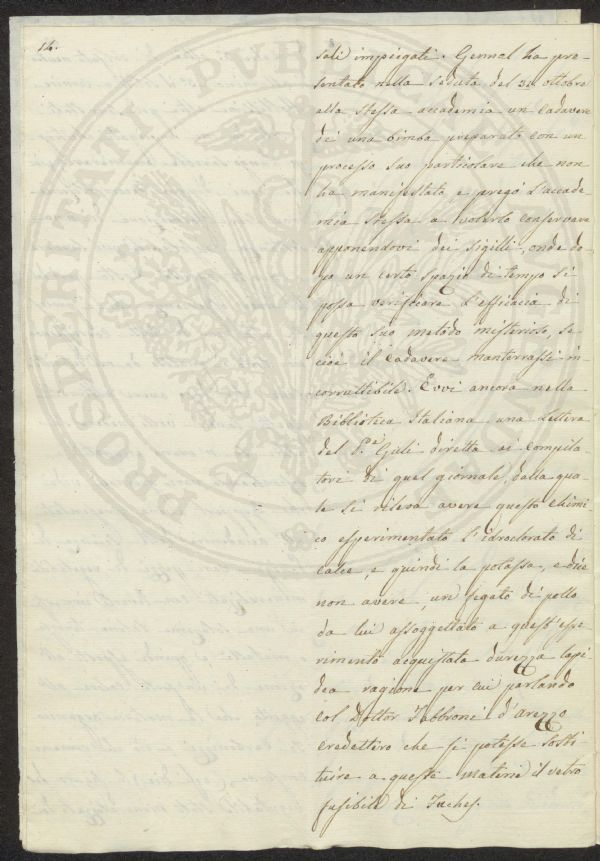 14.
sali impiegati. Gennal ha pre-
sentato nella seduta del 31 ottobre
alla stessa accademia un cadavere
di una bimba preparato con un
processo suo particolare che non
ha manifestato, e pregò l'accade-
mia stessa a volerlo conservare
apponendovi dei sigilli, onde do-
po un certo spazio di tempo si
possa verificare l'efficacia di
questo suo metodo misterioso, se
cioè il cadavere manterrassi in-
corruttibile. Evvi ancora nella
Biblioteca Italiana una Lettera
del P.e Giuli diretta ai compila-
tori di quel giornale, dalla qua-
le si rileva avere questo chimi-
co esperimentato l'idroclorato di
calce, e quindi la potassa, e dice
non avere, un fegato di pollo
da lui assoggettato a quest'espe-
rimento acquistata durezza lapi-
dea ragione per cui parlando
col Dottor Fabbroni d'Arezzo
credettero che si potesse sosti-
tuire a queste materie il vetro
fusibile di Fuches.
PROSPERITATI PUBLICAE